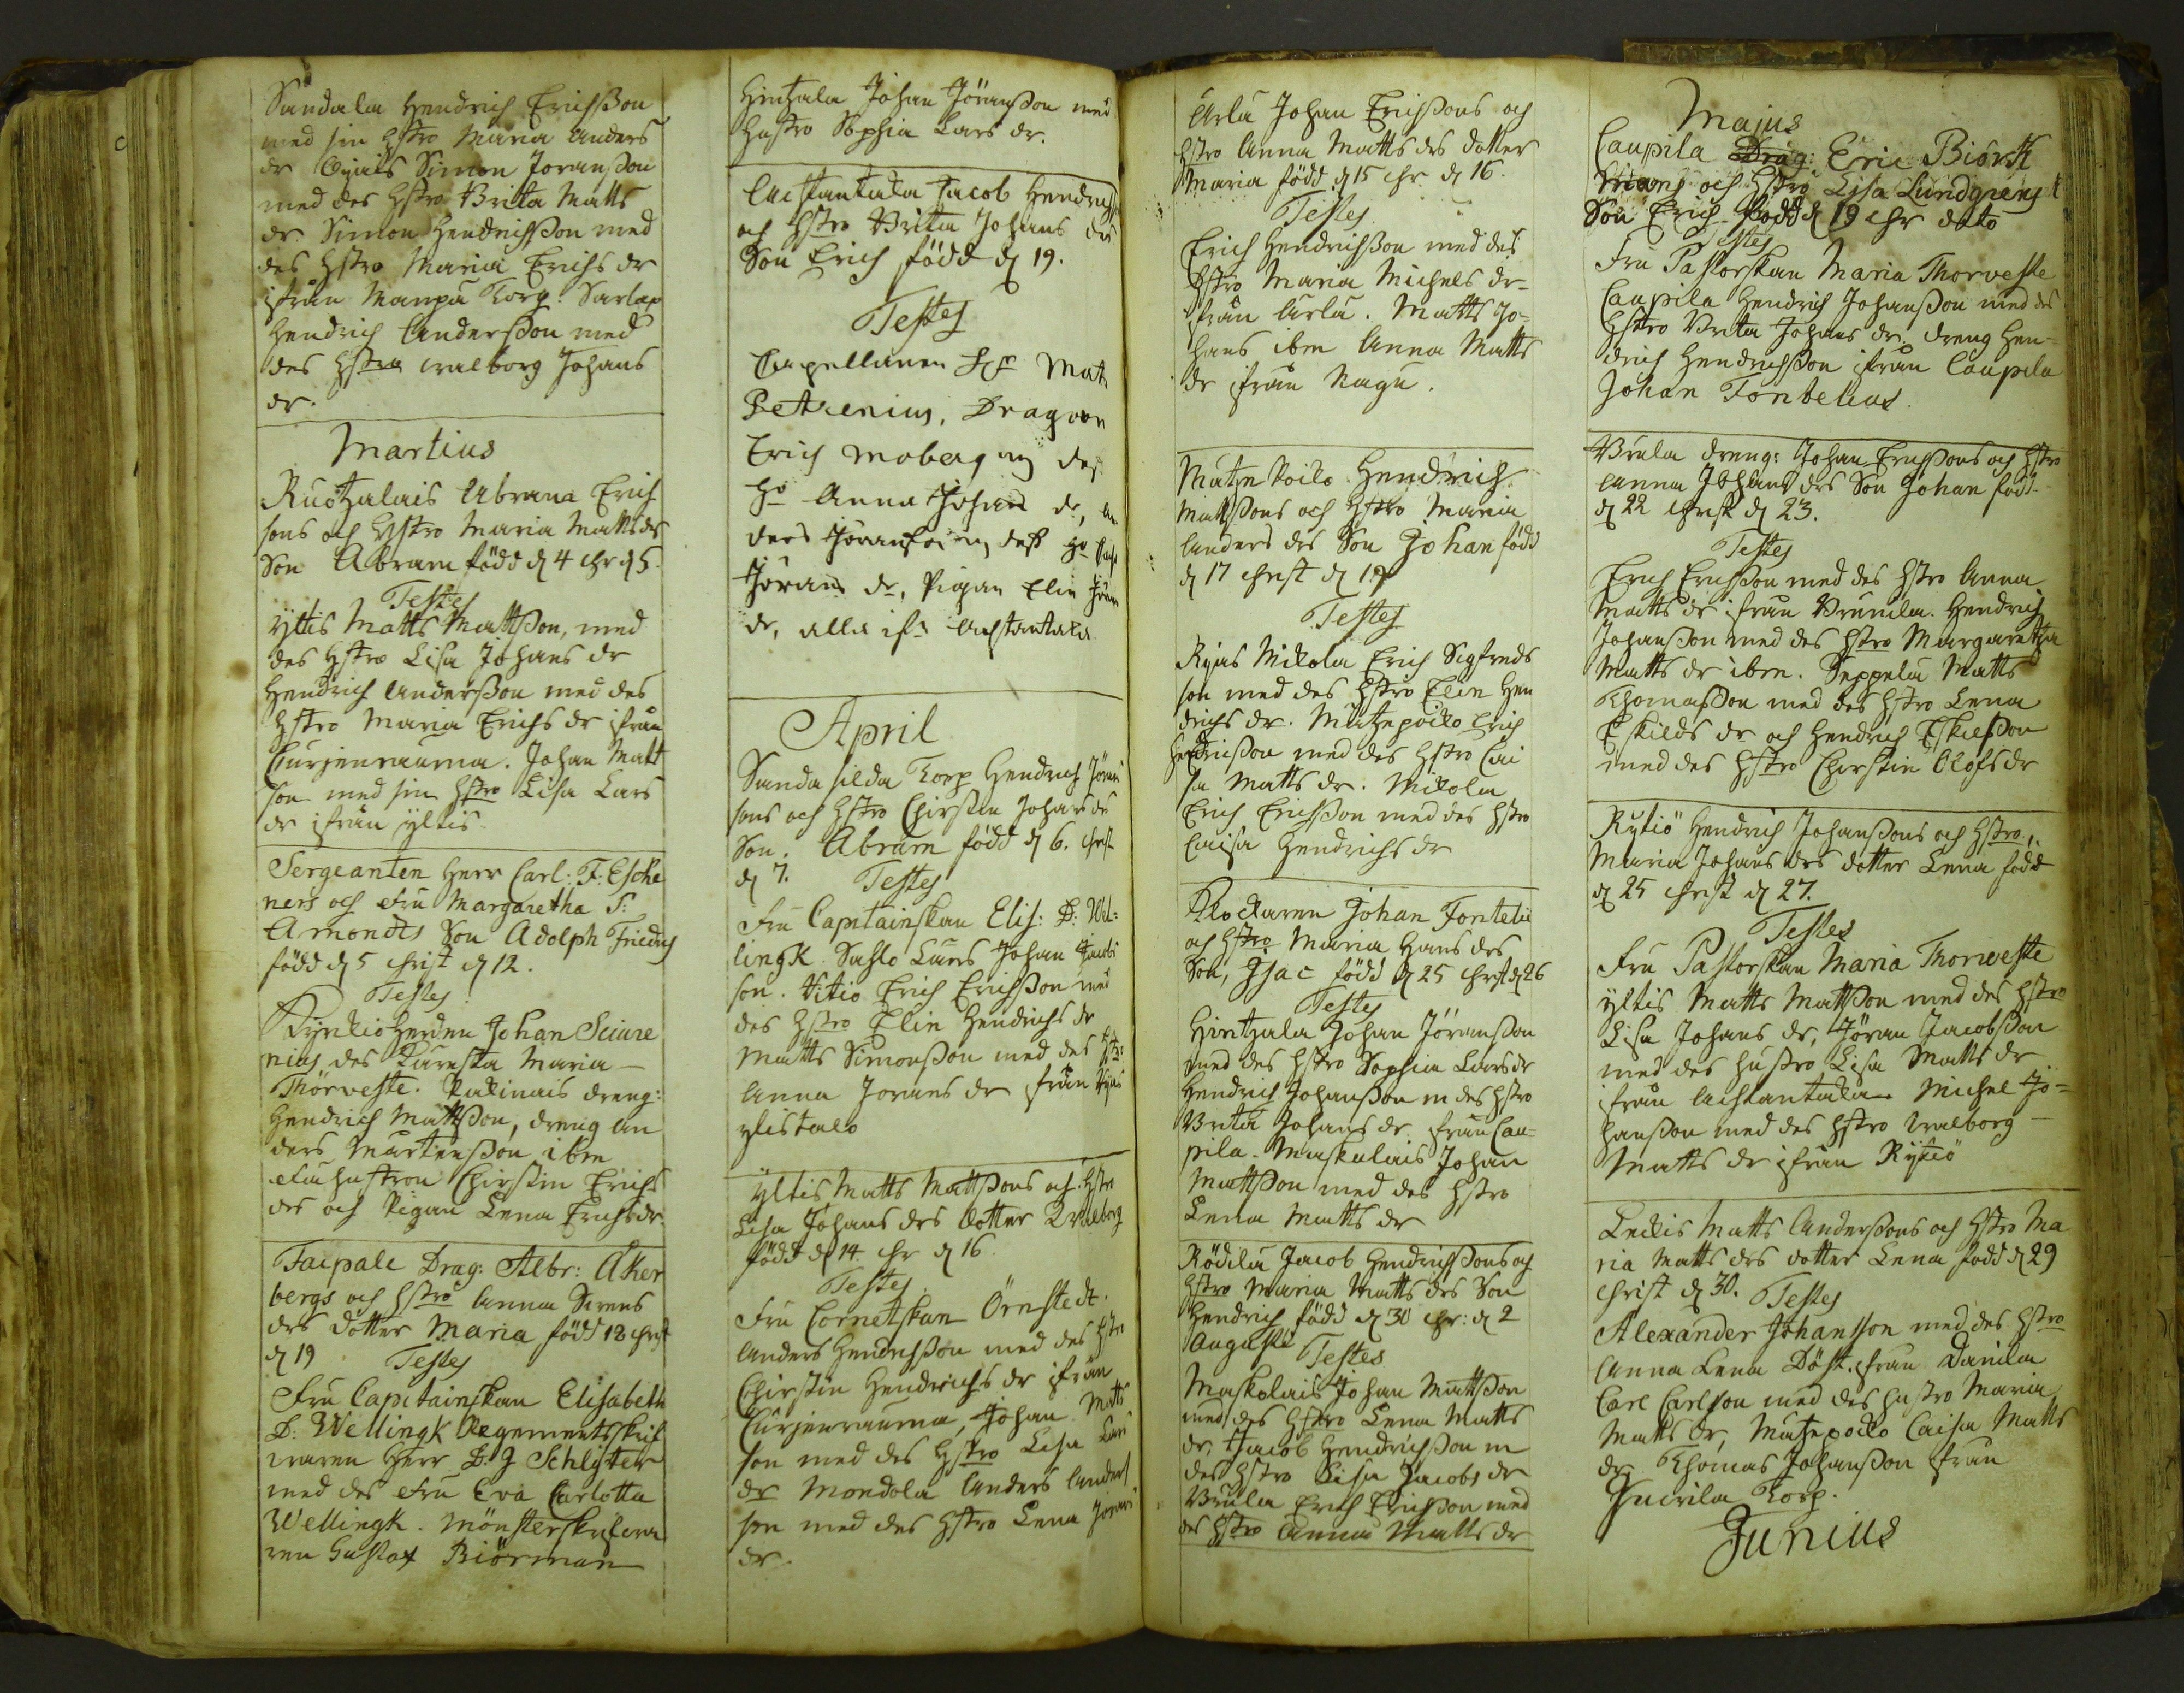 Sandala Hendrich Erichßon
med sin hstro Maria Anders
dr Simon Joranßon
med des hstro Brita Matts
dr. Simon Hendrichßon med
des hstro Maria Erichs dr
ifrån Torp: Sarlax
Hendrich Anderßon med
des hstro Walborg Johans
dr.
Martius
Ruotzalais Abrams Erich
sons och hstro Maria Matts drs
Son Abram född d 4 chr d 5.
Testes
Yltis Matts Mattßon, med
des hstro Lisa Johans dr
Hendrich Anderßon med des
hstro Maria Erichs dr ifrån
Curjenrauma. Johan Matt
son med sin hstro Lisa Lars
dr ifrån Yltis
Sergeanten Herr Carl: F: Esche
ners och Fru Margaretha S:
Amondts Son Adolph Friedrich
född d 5 christ d 12.
Testes
Kyrkioherden Johan Sciure
nius des Käresta Maria
Thorveste. Pakinais dreng:
Hendrich Mattßon, dreng An
ders Mårtenßon ibm
hustron Chirstin Erichs
dr och Pigan Lena Erichs dr.
Faipale Drag: Albr: Åker
bergs och hstro Anna Sirens
drs dotter Maria född 18 christ
d 19 Testes
Fru Capitainskan Elisabeth
D: Wellingk Regementsskrif
waren Herr D. J Schlyter
med des Fru Eva Carlotta
Wellingk. Mönsterskrifwa
ren Gustaf Biörman
Hintzala Johan Jöranßon med
hustro Sophia Lars dr.
Achtantala Jacob Hendrichs
och hstro Brita Johans drs
Son Erich född d 19.
Testes
Capellanen Hr Mat
Petrenius, Dragoon
Erich Moberg m des
ho Anna Johans dr, An
ders Jöranson m deß ho
Jörans dr, Pigan Elin Jörans
dr, alla ifr. Achtantala
April
Sandasilda Torp Hendrich Jörans
sons och hstro Chirstin Johans drs
Son. Abram född d 6. christ
d 7. Testes
Fru Capitainskan Elis: D: Wel=
lingk. Sahlo Lars Johan Jacobs
son. Vitio Erich Erichßon med
des hstro Elin Hendrichs dr
Matts Simonßon med des hstr:
Anna Jorans dr ifrån
ylistalo
Yltis Matts Mattßons och hstro
Lisa Johans drs dotter Walborg
född d 14 chr d 16.
Testes.
Fru Cornetskan Örnstedt.
Anders Hendrichßon med des hstro
Chirstin Hendrichs dr ifrån
Curjenrauma, Johan Matts
son med des hstro Lisa Lars
dr Mondola Anders Anders
son med des hstro Lena Jörans
dr.
Arla Johan Erichßons och
hstro Anna Matts drs dotter
Maria född d 15 chr d 16.
Testes
Erich Hendrichßon med des
hstro Maria Michels dr
ifrån Arla. Matts Jo=
hans ibm Anna Matts
dr ifrån Nagu.
Mutzepoiko Hendrich
Mattßons och hstro Maria
Anders drs Son Johan född
d 17 christ d 19
Testes
Ryjas Mikola Erich Sigfreds
son med des hstro Elin Hen
drichs dr. Mutzepoiko Erich
Hendrichßon med des hstro Cai
sa Matts dr. Mikola
Erich Erichßon med des hstro
Caisa Hendrichs dr
Klockaren Johan Fontelii
och hstro Maria Hans drs
Son, Isac född d 25 christ d 26
Testes
Hirtzala Johan Jöranßon
med des hstro Sophia Lars dr
Hendrich Johanßon m des hstro
Brita Johans dr ifrån Cau=
pila. Maskulais Johan
Mattßon med des hstro
Lena Matts dr
Rödila Jacob Hendrichßons och
hstro Maria Matts drs Son
Hendrich född d 30 chr: d 2
Augusti
Testes
Maskolais Johan Mattßon
med des hstro Lena Matts
dr, Jacob Hendrichßon m
des hstro Lisa Jacobs dr
Brula Erich Erichßon med
des hstro Anna Matts dr
Majus
Caupila Drag: Eric Biörk
och hstro Lisa Lundgrens
Son Erich född d 19 chr dito
Testes
Fru Pastorskan Maria Thorveste
Caupila Hendrich Johanßon med des
hstro Brita Johans dr. dreng Hen=
drich Hendrichßon ifrån Caupila
Johan Fontelius.
Brula dreng: Johan Erichßons och hstro
Anna Johans drs Son Johan född
d 22 christ d 23.
Testes
Erich Erichßon med des hstro Anna
Matts dr ifrån Brunila. Hendrich
Johanßon med des hstro Margaretha
Matts dr ibm. Seppela Matts
Thomasßon med des hstro Lena
Eskilds dr och Hendrich Eskilßon
med des hstro Chirstin Olofs dr
Rytiö Hendrich Johanßons och hstro
Maria Johans drs dotter Lena född
d 25 christ d 27.
Testes
Fru Pastorskan Maria Thorveste
Yltis Matts Mattßon med des hstro
Lisa Johans dr, Jöran Jacobßon
med des hustro Lisa Matts dr
ifrån Achtantala. Michel Jo=
hanßon med des hstro Walborg
Matts dr ifrån Rytiö
Leikis Matts Anderßons och hstro Ma
ria Matts drs dotter Lena född d 29
christ d 30. Testes
Alexander Johansson med des hstro
Anna Lena Döst. ifrån Danila
Carl Carlson med des hustro Maria
Matts dr, Mutzepoiko Caisa Matts
dr Thomas Johanßon ifrån
Torp.
Junius